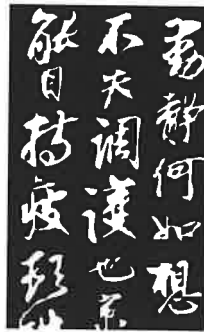 動靜何如想
不失調護也
能自持疲